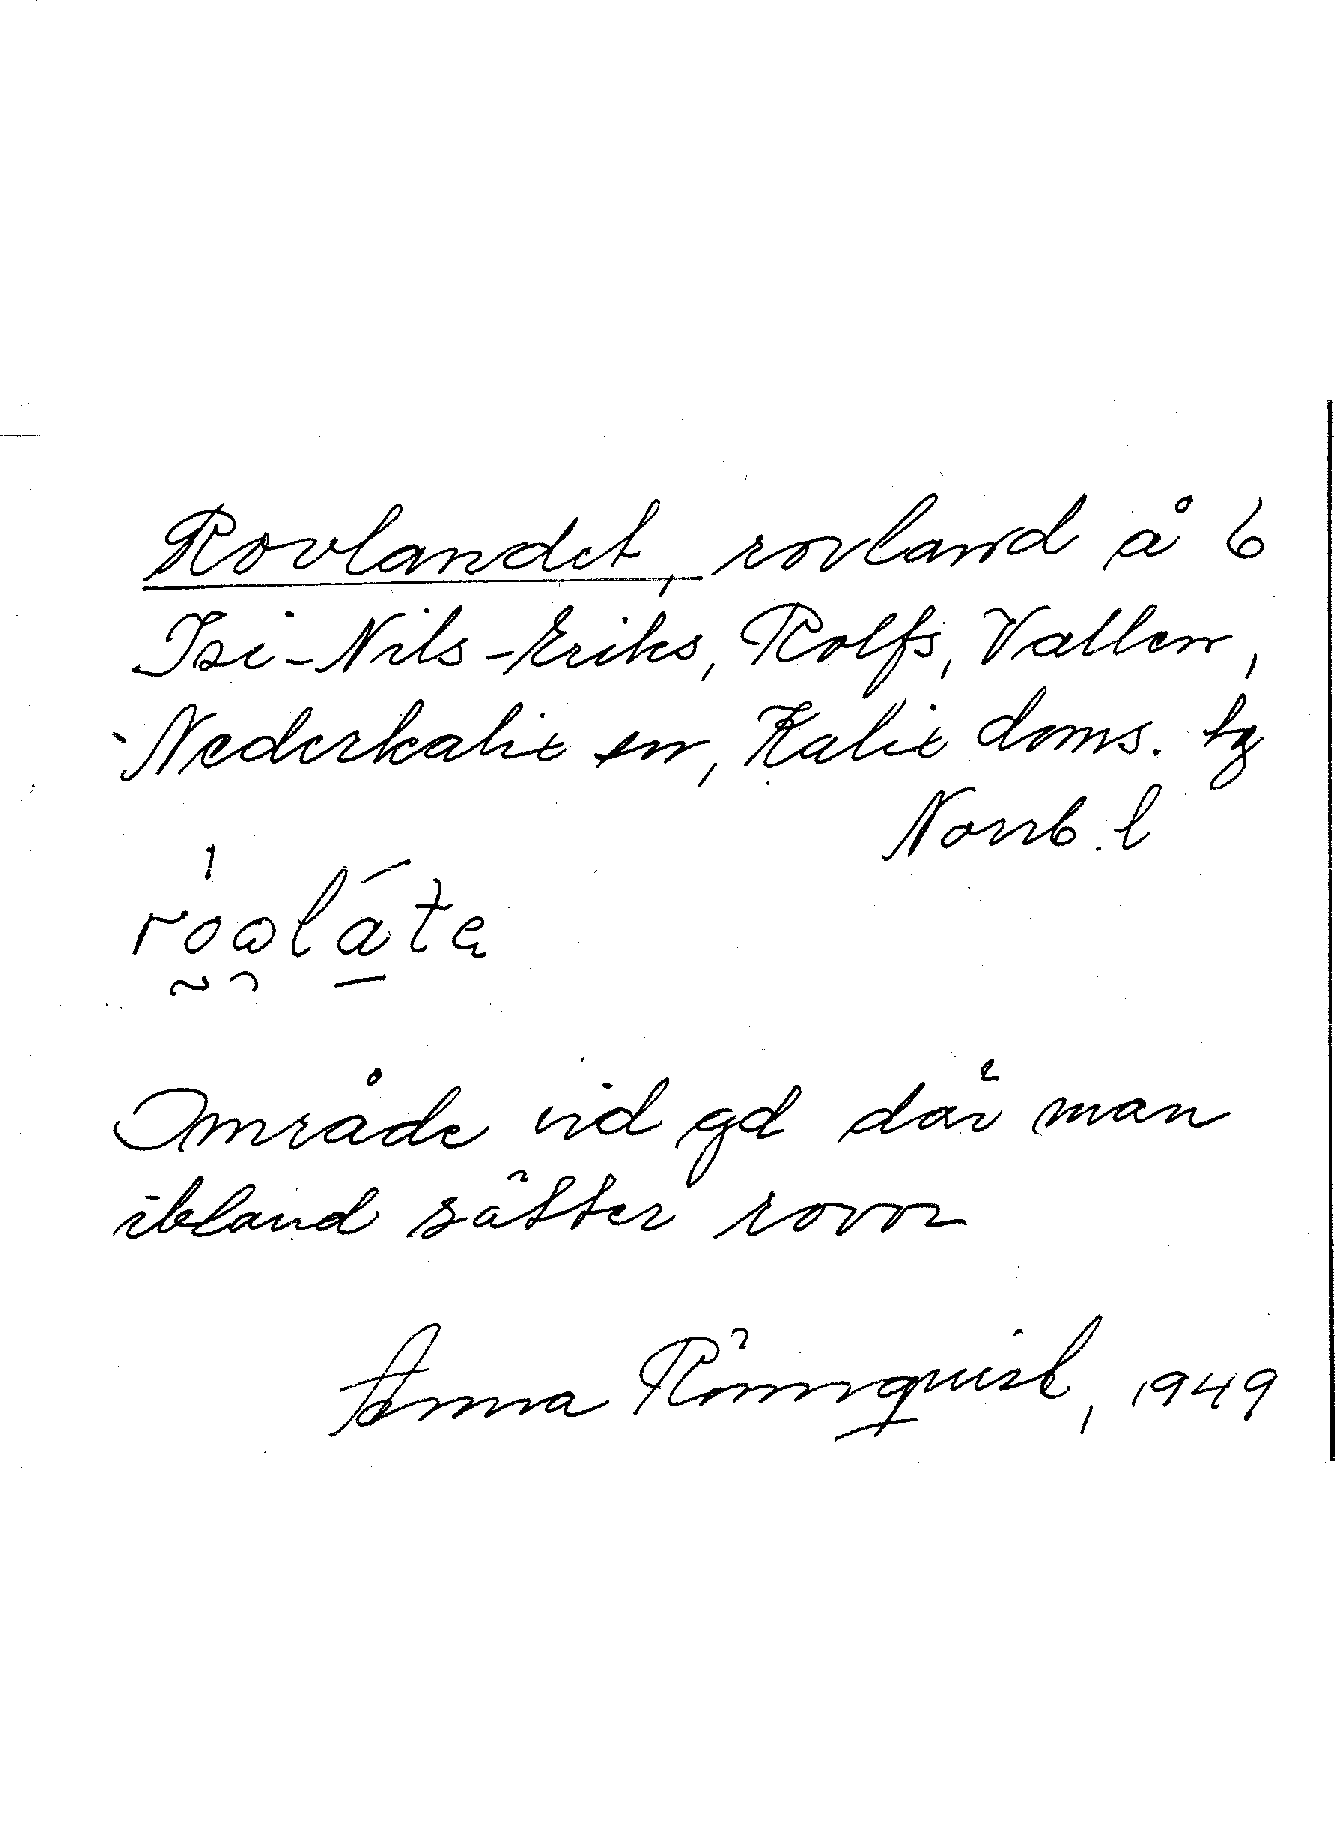 Rovlandet, rovland å 6
Isi-Nils-Eriks, Rolfs, Vallen,
Nederkalix sn, Kalix doms. tg
Norrb. l
Område vid gd där man
ibland sätter rovor
Anna Rönnquist, 1949